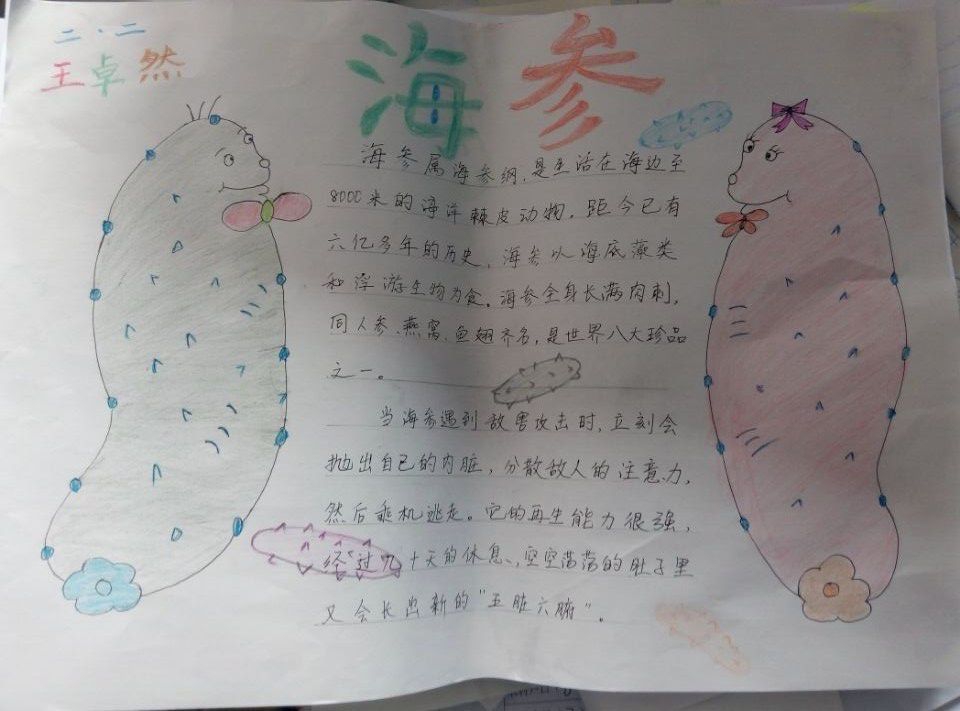 二·二
王卓然
海参
海参属海参纲,是生活在海边至
8000米的海洋棘皮动物,距今已有
六亿多年的历史,海参以海底藻类
和浮游生物为食。海参全身长满肉刺,
同人参、燕窝、鱼翅齐名,是世界八大珍品
之一。
当海参遇到敌害攻击时,立刻会
抛出自己的内脏,分散敌人的注意力,
然后乘机逃走。它的再生能力很强,
经过几十天的休息、,空空荡荡的肚子里
又会长出新的"五脏六腑"。